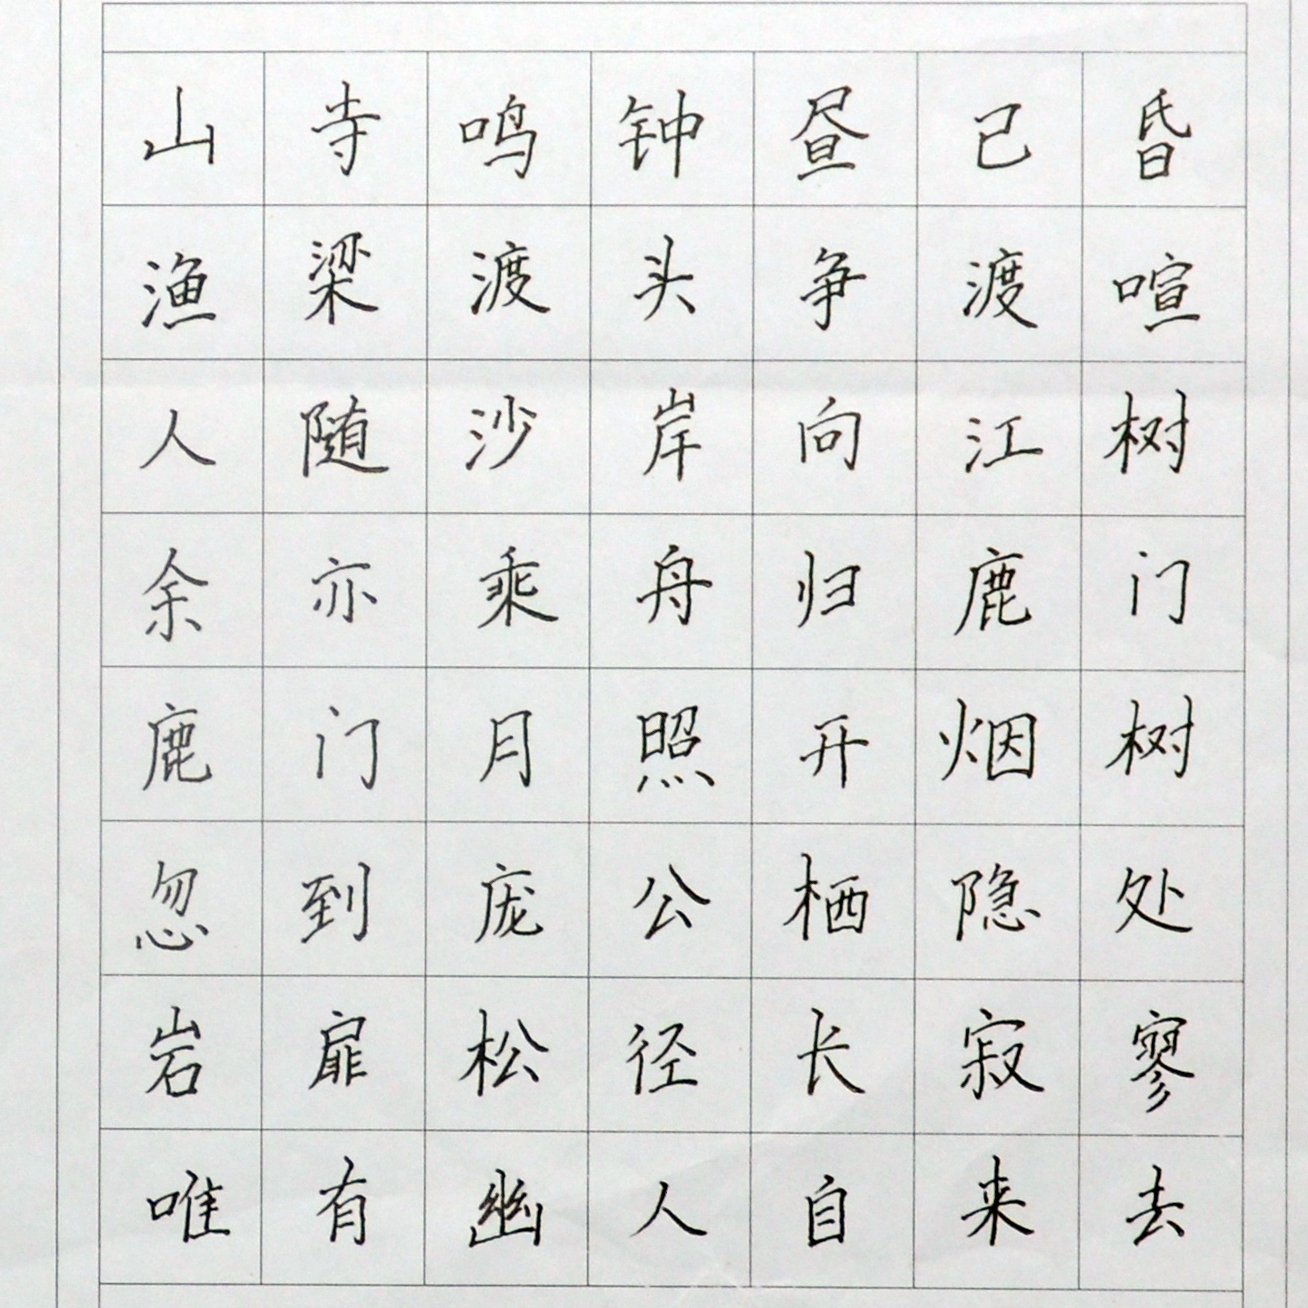 山寺鸣钟昼已昏
渔梁渡头争渡喧
人随沙岸向江树
余亦乘舟归鹿门
鹿门月照开烟树
忽到庞公栖隐处
岩扉松径长寂寥
唯有幽人自来去